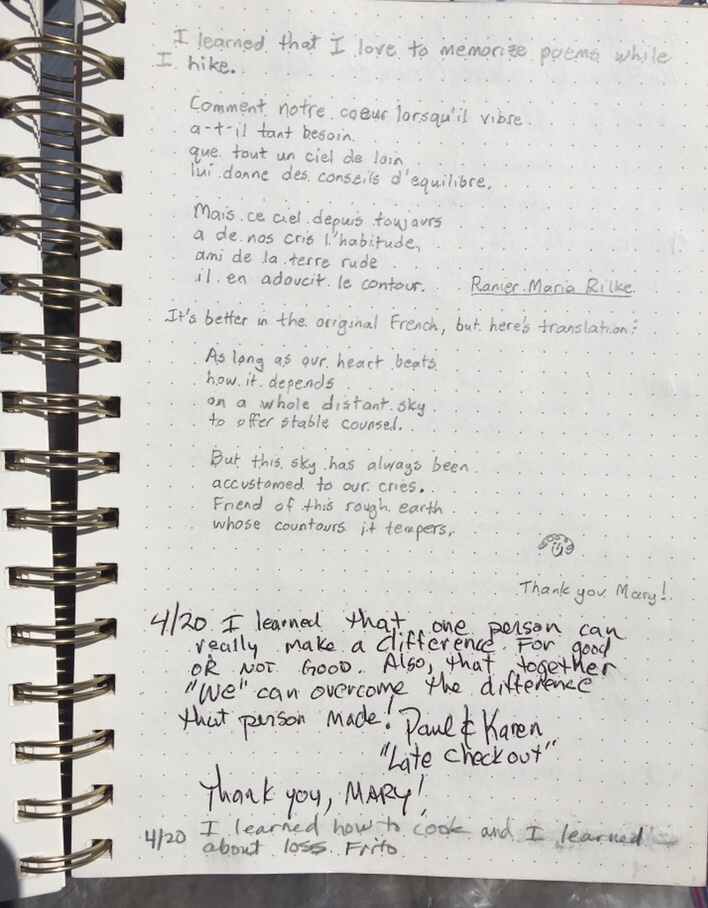 I learned that I love to memorize poems while
I hike.
Comment notre coeur lorsqu'il vibre
a-t-il tant besoin
que tout un ciel de loin
lui donne des conseils d'equilibre.
Mais ce ciel depuis toujours
a de nos cris l'habitude,
ami de la terre rude
il en adoucit le contour. Ranier Maria Rilke
It's better in the original French, but here's translation:
As long as our heart beats
how it depends
on a whole distant sky
to offer stable counsel.
But this sky has always been
accustomed to our cries.
Friend of this rough earth
whose countours it tempers.
Thank you Mary!
4/20 I learned that one person can
really make a difference. For good
OR NOT GOOD. Also, that together
"We" can overcome the difference
that person made! Paul & Karen
"Late Checkout"
Thank you, MARY!
4/20 I learned how to cook and I learned
about loss. Frito